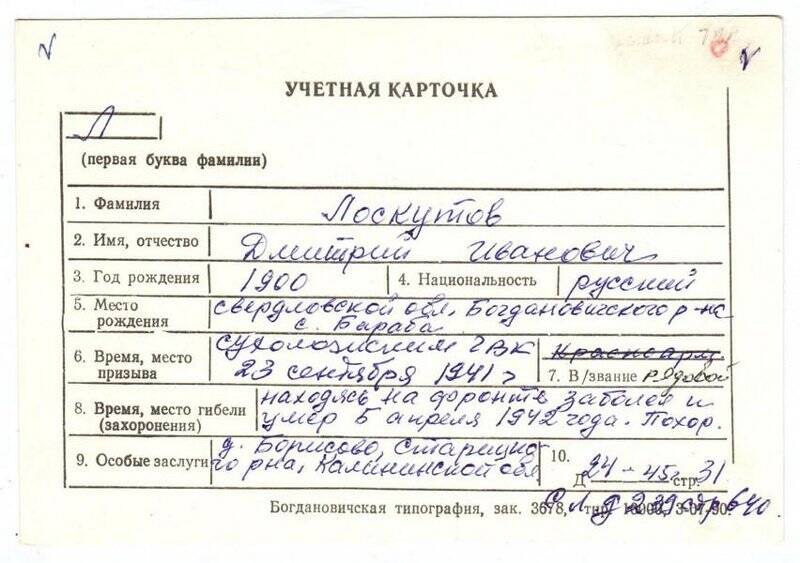 УЧЕТНАЯ КАРТОЧКА
Л
(первая буква фамилии)
1. Фамилия Лоскутов
2. Имя, отчество Дмитрий Иванович
3. Год рождения 1900 4. Национальность русский
5. Место рождения свердловской обл. Богдановичского р-на
с. Бараба
6. Время, место призыва сухоложским ГВК
23 сентября 1941г
Красноарм.
7. В/звание рядовой
8. Время, место гибели (захоронения) находясь на фронте заболел и
умер 5 апреля 1942 года. Похор.
д. Борисово, Старицко-
го р-на, Калининской обл
9. Особые заслуги
10. Д 24-45г стр. 31
Богдановичская типография, зак. 3678, тир. 10000, 3-07-90.